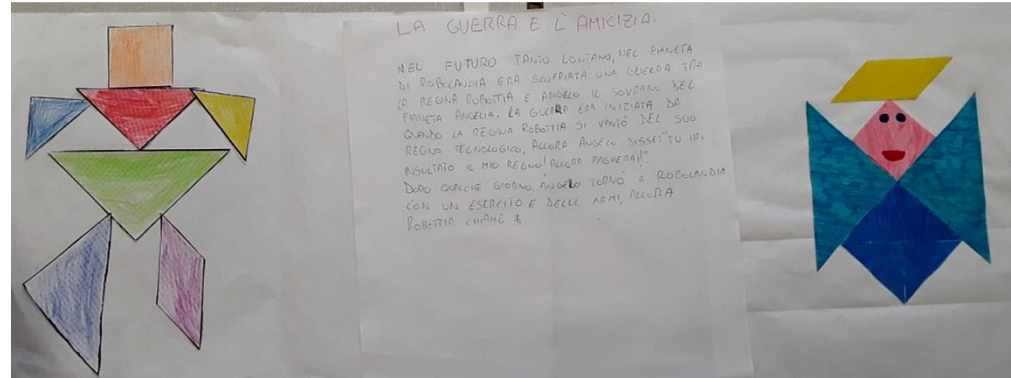 LA GUERRA E L'AMICIZIA.
NEL FUTURO TANTO LONTANO, NEL PIANETA
DI ROBOLANDIA ERA SCOPPIATA UNA GUERRA TRA
LA REGINA ROBOTTIA E ANGELO IL SOVRANO DEL
PIANETA ANGELIA. LA GUERRA ERA INIZIATA DA
QUANDO LA REGINA ROBOTTIA SI VANTÓ DEL SUO
REGNO TECNOLOGICO, ALLORA ANGELO DISSE:"TU HAI
INSULTATO IL MIO REGNO! ALLORA PAGHERAI!".
DOPO QUALCHE GIORNO, ANGELO TORNÓ A ROBOLANDIA
CON UN ESERCITO E DELLE ARMI, ALLORA
ROBOTTIA CHIAMÓ